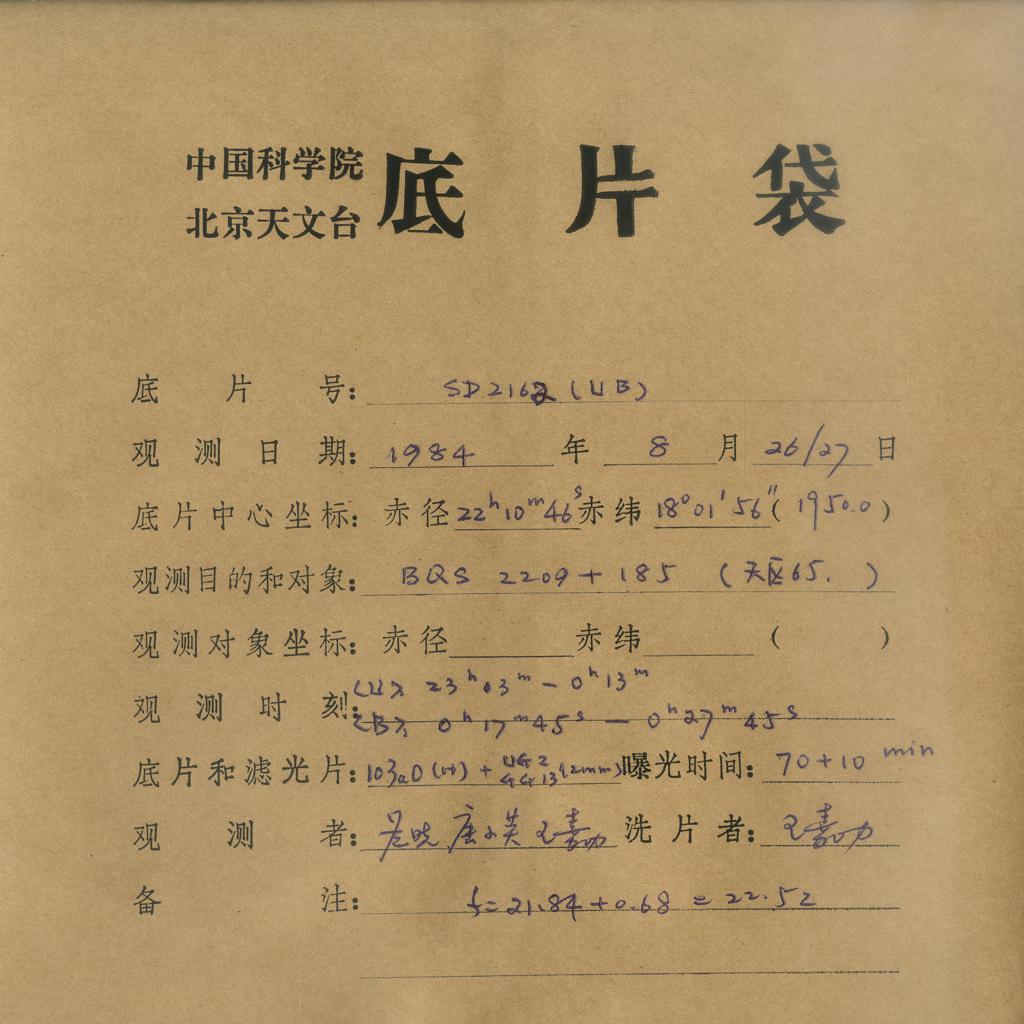 中国科学院
北京天文台
底片袋
底片号: SD2162 (UB)
观测日期: 1984 年 8 月 26/27 日
底片中心坐标: 赤径 22h10m46s 赤纬 18°01′56″ (1950.0)
观测目的和对象: BQS 2209+185 (天区65.)
观测对象坐标: 赤径 赤纬 ( )
观测时刻: <U> 23h03m - 0h13m
<B> 0h17m45s - 0h27m45s
底片和滤光片: 103aO (H) + UG2 GG13 (2mm) 曝光时间: 70+10 min
观测者: 晓 唐小英 王嘉功 洗片者: 王嘉功
备注: f=21.84+0.68=22.52